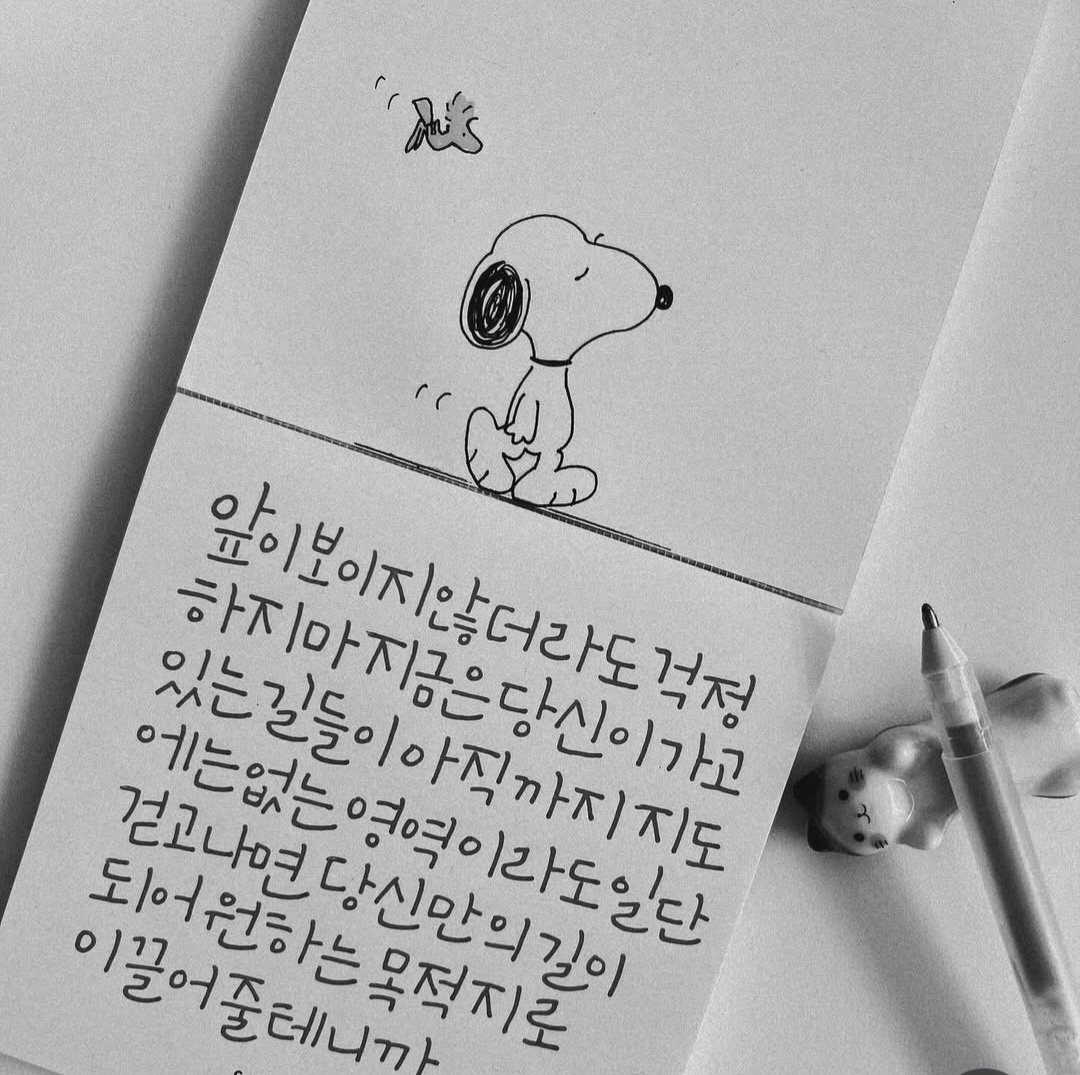 앞이 보이지 않더라도 걱정
하지마 지금은 당신이 가고
있는 길들이 아직까지 지도
에는 없는 영역이라도 일단
걷고나면 당신만의 길이
되어 원하는 목적지로
이끌어 줄테니까